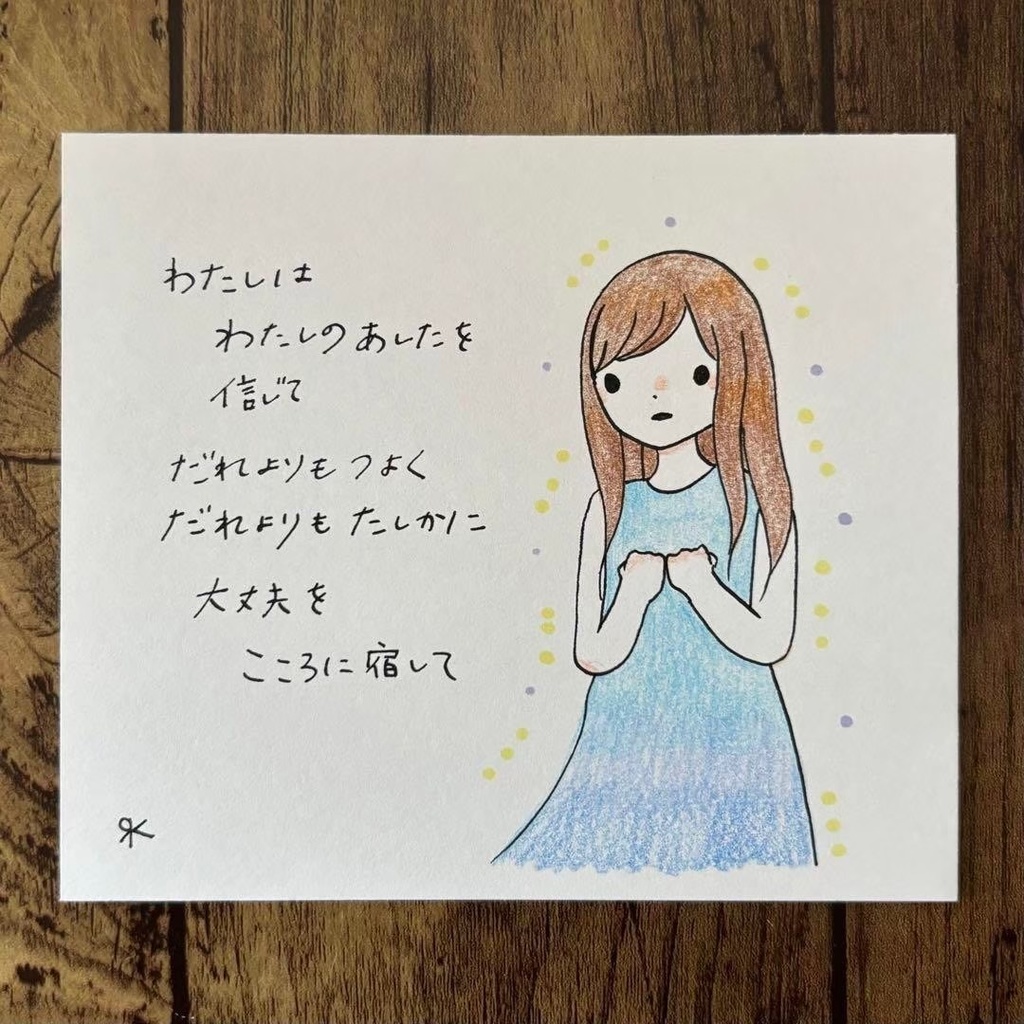 わたしは
わたしの あしたを
信じて
だれよりも つよく
だれよりも たしかに
大丈夫を
こころに 宿して